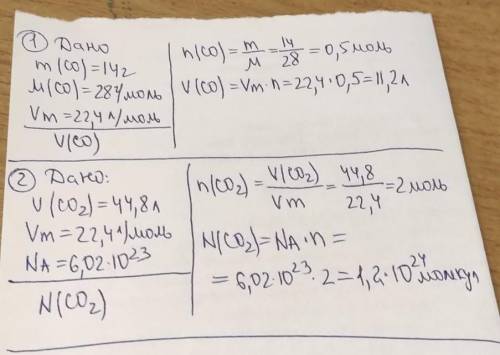 ① Дано
m(CO)=14г
M(CO)=28г/моль
Vm=22,4л/моль
V(CO)
n(CO)=m/M=14/28=0,5моль
V(CO)=Vm·n=22,4·0,5=11,2л
② Дано:
V(CO₂)=44,8л
Vm=22,4л/моль
NA=6,02·10²³
N(CO₂)
n(CO₂)=V(CO₂)/Vm=44,8/22,4=2моль
N(CO₂)=NA·n=
=6,02·10²³·2=1,2·10²⁴молкул